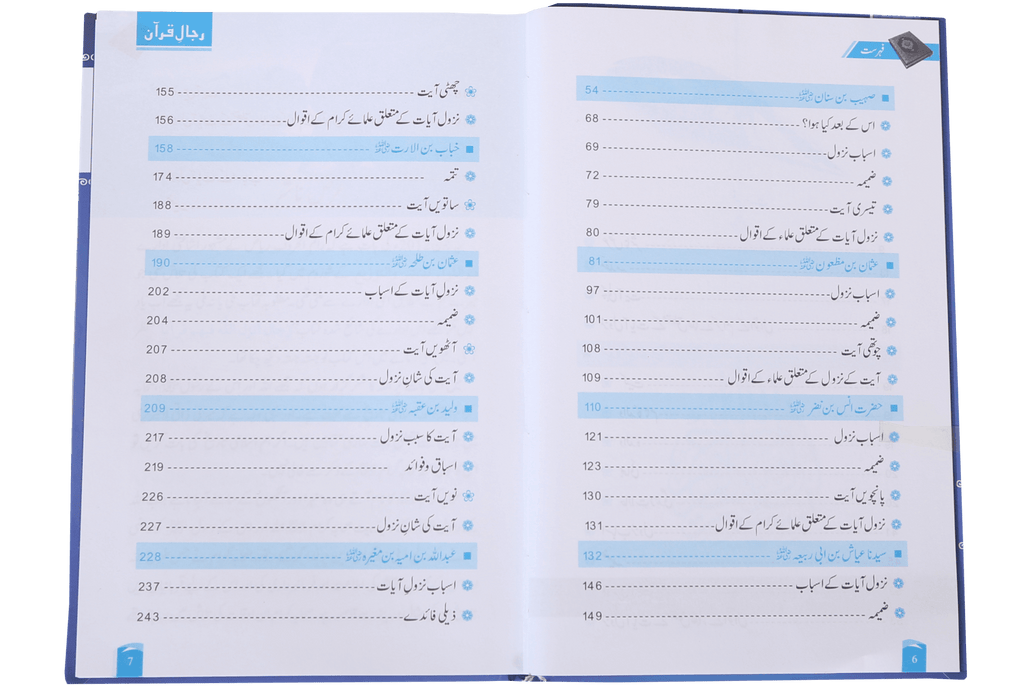 فہرست
صہیب بن سنان ﷛ 54
اس کے بعد کیا ہوا؟ 68
اسباب نزول 69
ضمیمہ 72
تیسری آیت 79
نزول آیات کے متعلق علماء کے اقوال 80
عثمان بن مظعون 81
اسباب نزول 97
ضمیمہ 101
چوتھی آیت 108
آیت کے نزول کے متعلق علماء کے اقوال 109
حضرت انس بن نضر 110
اسباب نزول 121
ضمیمہ 123
پانچویں آیت 130
نزول آیات کے متعلق علمائے کرام کے اقوال 131
سیدنا عیاش بن ابی ربیعہ 132
نزول آیات کے اسباب 146
ضمیمہ 149
6
رجالِ قرآن
چھٹی آیت 155
نزول آیات کے متعلق علمائے کرام کے اقوال 156
خباب بن الارت 158
تتمہ 174
ساتویں آیت 188
نزول آیات کے متعلق علمائے کرام کے اقوال 189
عثمان بن طلحہ 190
نزولِ آیات کے اسباب 202
ضمیمہ 204
آٹھویں آیت 207
آیت کی شانِ نزول 208
ولید بن عقبہ 209
آیت کا سبب نزول 217
اسباق وفوائد 219
نویں آیت 226
آیت کی شانِ نزول 227
عبداللہ بن امیہ بن مغیرہ 228
اسباب نزولِ آیات 237
ذیلی فائدے 243
7